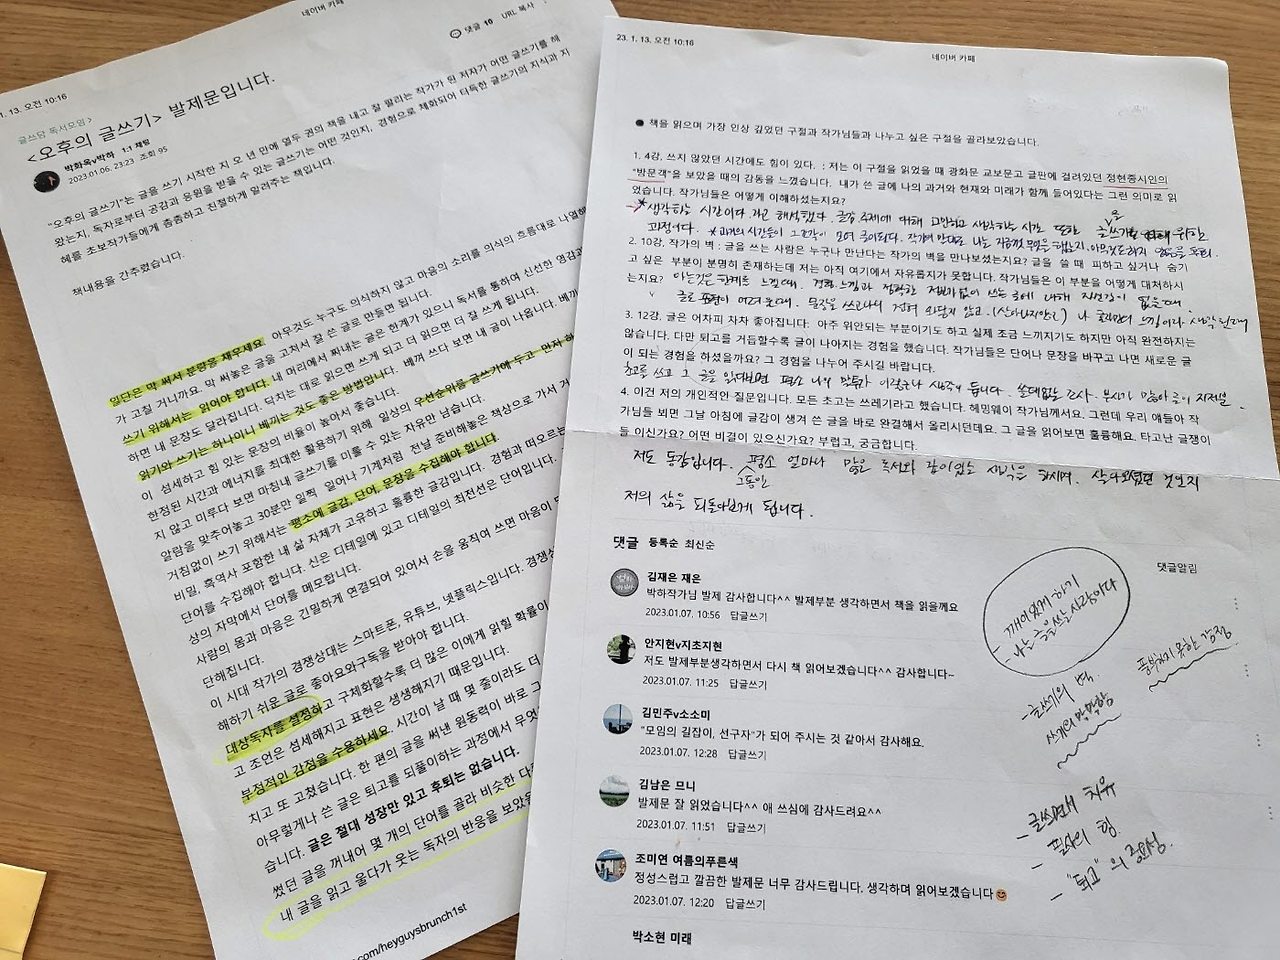 네이버 카페
1. 13. 오전 10:16
댓글 10 URL 복사
글쓰담 독서모임 >
<오후의 글쓰기> 발제문입니다.
박화옥v박하 1:1 채팅
2023.01.06. 23:23 조회 95
"오후의 글쓰기"는 글을 쓰기 시작한 지 오 년 만에 열두 권의 책을 내고 잘 팔리는 작가가 된 저자가 어떤 글쓰기를 해
왔는지, 독자로부터 공감과 응원을 받을 수 있는 글쓰기는 어떤 것인지, 경험으로 체화되어 터득한 글쓰기의 지식과 지
혜를 초보작가들에게 촘촘하고 친절하게 알려주는 책입니다.
책내용을 간추렸습니다.
일단은 막 써서 분량을 채우세요. 아무것도 누구도 의식하지 않고 마음의 소리를 의식의 흐름대로 나열해
가 고칠 거니까요. 막 써놓은 글을 고쳐서 잘 쓴 글로 만들면 됩니다.
쓰기 위해서는 읽어야 합니다. 내 머리에서 짜내는 글은 한계가 있으니 독서를 통하여 신선한 영감과
하면 내 문장도 달라집니다. 닥치는 대로 읽으면 쓰게 되고 더 읽으면 더 잘 쓰게 됩니다.
읽기와 쓰기는 하나이니 베끼는 것도 좋은 방법입니다. 베껴 쓰다 보면 내 글이 나옵니다. 베끼
이 섬세하고 힘 있는 문장의 비율이 높아서 좋습니다.
한정된 시간과 에너지를 최대한 활용하기 위해 일상의 우선순위를 글쓰기에 두고 먼저 하
지 않고 미루다 보면 마침내 글쓰기를 미룰 수 있는 자유만 남습니다.
알람을 맞추어놓고 30분만 일찍 일어나 기계처럼 전날 준비해놓은 책상으로 가서 거
거침없이 쓰기 위해서는 평소에 글감, 단어, 문장을 수집해야 합니다.
비밀, 흑역사 포함한 내 삶 자체가 고유하고 훌륭한 글감입니다. 경험과 떠오르는
단어를 수집해야 합니다. 신은 디테일에 있고 디테일의 최전선은 단어입니다.
상의 자막에서 단어를 메모합니다.
사람의 몸과 마음은 긴밀하게 연결되어 있어서 손을 움직여 쓰면 마음이
단해집니다.
이 시대 작가의 경쟁상대는 스마트폰, 유튜브, 넷플릭스입니다. 경쟁상
해하기 쉬운 글로 좋아요와구독을 받아야 합니다.
대상독자를 설정하고 구체화할수록 더 많은 이에게 읽힐 확률이
고 조언은 섬세해지고 표현은 생생해지기 때문입니다.
부정적인 감정을 수용하세요. 시간이 날 때 몇 줄이라도 더
치고 또 고쳤습니다. 한 편의 글을 써낸 원동력이 바로 그
아무렇게나 쓴 글은 퇴고를 되풀이하는 과정에서 무엇
습니다. 글은 절대 성장만 있고 후퇴는 없습니다.
썼던 글을 꺼내어 몇 개의 단어를 골라 비슷한 다
내 글을 읽고 울다가 웃는 독자의 반응을 보았을
.com/heyguysbrunch1st
23. 1. 13. 오전 10:16
네이버 카페
● 책을 읽으며 가장 인상 깊었던 구절과 작가님들과 나누고 싶은 구절을 골라보았습니다.
1. 4강, 쓰지 않았던 시간에도 힘이 있다. : 저는 이 구절을 읽었을 때 광화문 교보문고 글판에 걸려있던 정현종시인의
"방문객"을 보았을 때의 감동을 느꼈습니다. 내가 쓴 글에 나의 과거와 현재와 미래가 함께 들어있다는 그런 의미로 읽
었습니다. 작가님들은 어떻게 이해하셨는지요?
* 생각하는 시간이다 라고 해석했다. 글감, 주제에 대해 고민하고 생각하는 시간 또한 글쓰기를 위한
과정이다. * 과거의 시간들이 그 조각이 모여 글이된다.
2. 10강, 작가의 벽 : 글을 쓰는 사람은 누구나 만난다는 작가의 벽을 만나보셨는지요? 글을 쓸 때 피하고 싶거나 숨기
고 싶은 부분이 분명히 존재하는데 저는 아직 여기에서 자유롭지가 못합니다. 작가님들은 이 부분을 어떻게 대처하시
는지요? 아는것은 한계를 느낄때. 정확한 정보가 없이 쓰는 글에 대해 자신감이 없을때.
글로 표현이 어려울때.
3. 12강, 글은 어차피 차차 좋아집니다: 아주 위안되는 부분이기도 하고 실제 조금 느끼지기도 하지만 아직 완전하지는
않습니다. 다만 퇴고를 거듭할수록 글이 나아지는 경험을 했습니다. 작가님들은 단어나 문장을 바꾸고 나면 새로운 글
이 되는 경험을 하셨을까요? 그 경험을 나누어 주시길 바랍니다.
초고를 쓰고 그 글을 읽다보면 평소 나의 말투가 이렇구나 생각이 듭니다. 쓸데없는 조사. 부사가 많아 글이 지저분.
4. 이건 저의 개인적인 질문입니다. 모든 초고는 쓰레기라고 했습니다. 헤밍웨이 작가님께서요. 그런데 우리 얘들아 작
가님들 뵈면 그날 아침에 글감이 생겨 쓴 글을 바로 완결해서 올리시던데요. 그 글을 읽어보면 훌륭해요. 타고난 글쟁이
들 이신가요? 어떤 비결이 있으신가요? 부럽고, 궁금합니다.
저도 동감입니다. 평소 얼마나 많은 독서와 깊이있는 생각을 하시며, 살아오셨던 것인지
그동안
저의 삶을 되돌아보게 됩니다.
댓글 등록순 최신순
댓글알림
김재은 재은
박하작가님 발제 감사합니다^^ 발제부분 생각하면서 책을 읽을께요
2023.01.07. 10:56 답글쓰기
안지현v지초지현
저도 발제부분생각하면서 다시 책 읽어보겠습니다^^ 감사합니다~
2023.01.07. 11:25 답글쓰기
김민주v소소미
"모임의 길잡이, 선구자"가 되어 주시는 것 같아서 감사해요.
2023.01.07. 12:28 답글쓰기
김남은 므니
발제문 잘 읽었습니다^^ 애 쓰심에 감사드려요^^
2023.01.07. 11:51 답글쓰기
조미연 여름의푸른색
정성스럽고 깔끔한 발제문 너무 감사드립니다. 생각하며 읽어보겠습니다😊
2023.01.07. 12:20 답글쓰기
박소현 미래
깨어있게 하기
- 나는 글을 쓸 사람이다
풍부하지 못한 감정
- 글쓰기의 벽
쓰기의 막막함
- 글쓰면서 치유
- 필사의 힘.
- "퇴고"의 중요성.